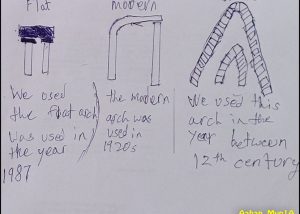 Flat
We used
the flat arch
was used in
the year
1987
modern
the modern
arch was
used in
1920s
We used this
arch in the
year between
12th century